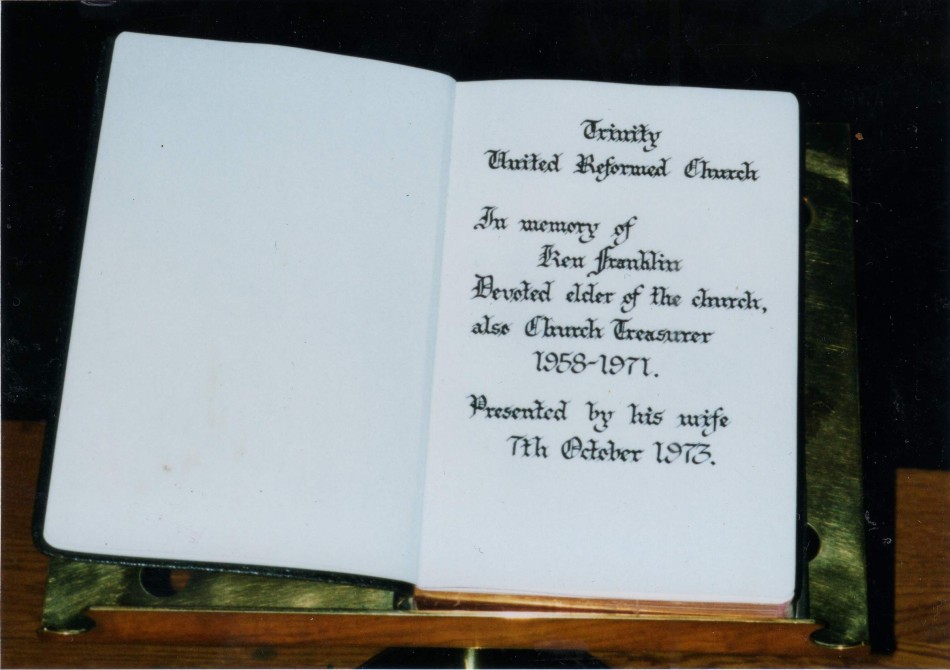 Trinity
United Reformed Church
In memory of
Ken Franklin
Devoted elder of the church,
also Church Treasurer
1958-1971.
Presented by his wife
7th October 1973.